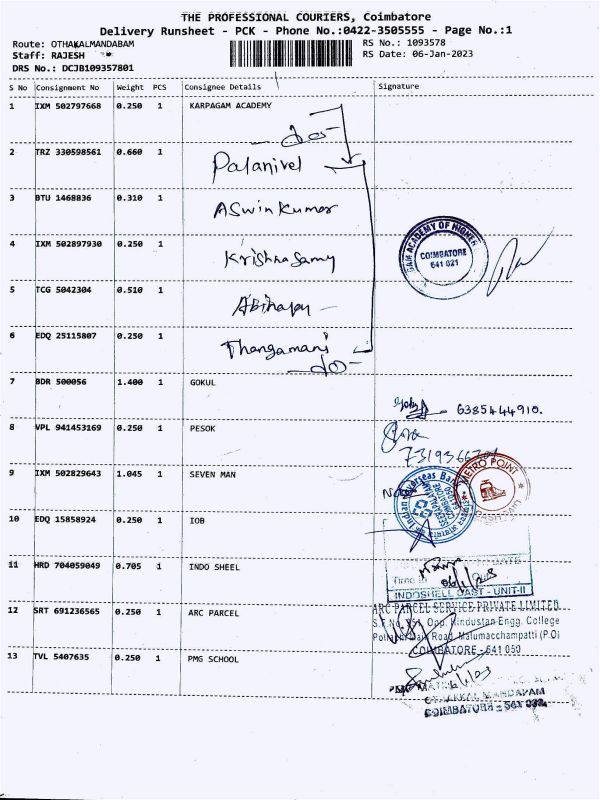 THE PROFESSIONAL COURIERS, Coimbatore
Delivery Runsheet - PCK - Phone No.:0422-3505555 - Page No.:1
Route: OTHAKALMANDABAM
RS No.: 1093578
Staff: RAJESH
RS Date: 06-Jan-2023
DRS No.: DCJB109357801
S No Consignment No Weight PCS Consignee Details Signature
1 IXM 502797668 0.250 1 KARPAGAM ACADEMY
2 TRZ 330598561 0.660 1 Palanivel
3 BTU 1468836 0.310 1 ASwin Kumar
4 IXM 502897930 0.250 1 Krishnasamy
COIMBATORE
641 021
5 TCG 5042304 0.510 1
6 EDQ 25115807 0.250 1 Thangamani
7 BDR 500056 1.400 1 GOKUL
6385444910.
8 VPL 941453169 0.250 1 PESOK
9 IXM 502829643 1.045 1 SEVEN MAN
METRO POINT
10 EDQ 15858924 0.250 1 IOB
11 HRD 704059049 0.705 1 INDO SHEEL
Time In
INDOSHELL CAST - UNIT-II
12 SRT 691236565 0.250 1 ARC PARCEL
ARC PARCEL SERVICE PRIVATE LIMITED
Opp. Hindustan Engg. College
Road, Malumacchampatti (P.O)
COIMBATORE - 641 050
13 TVL 5407635 0.250 1 PMG SCHOOL
OTHAKKAL MANDAPAM
COIMBATORE - 641 032.